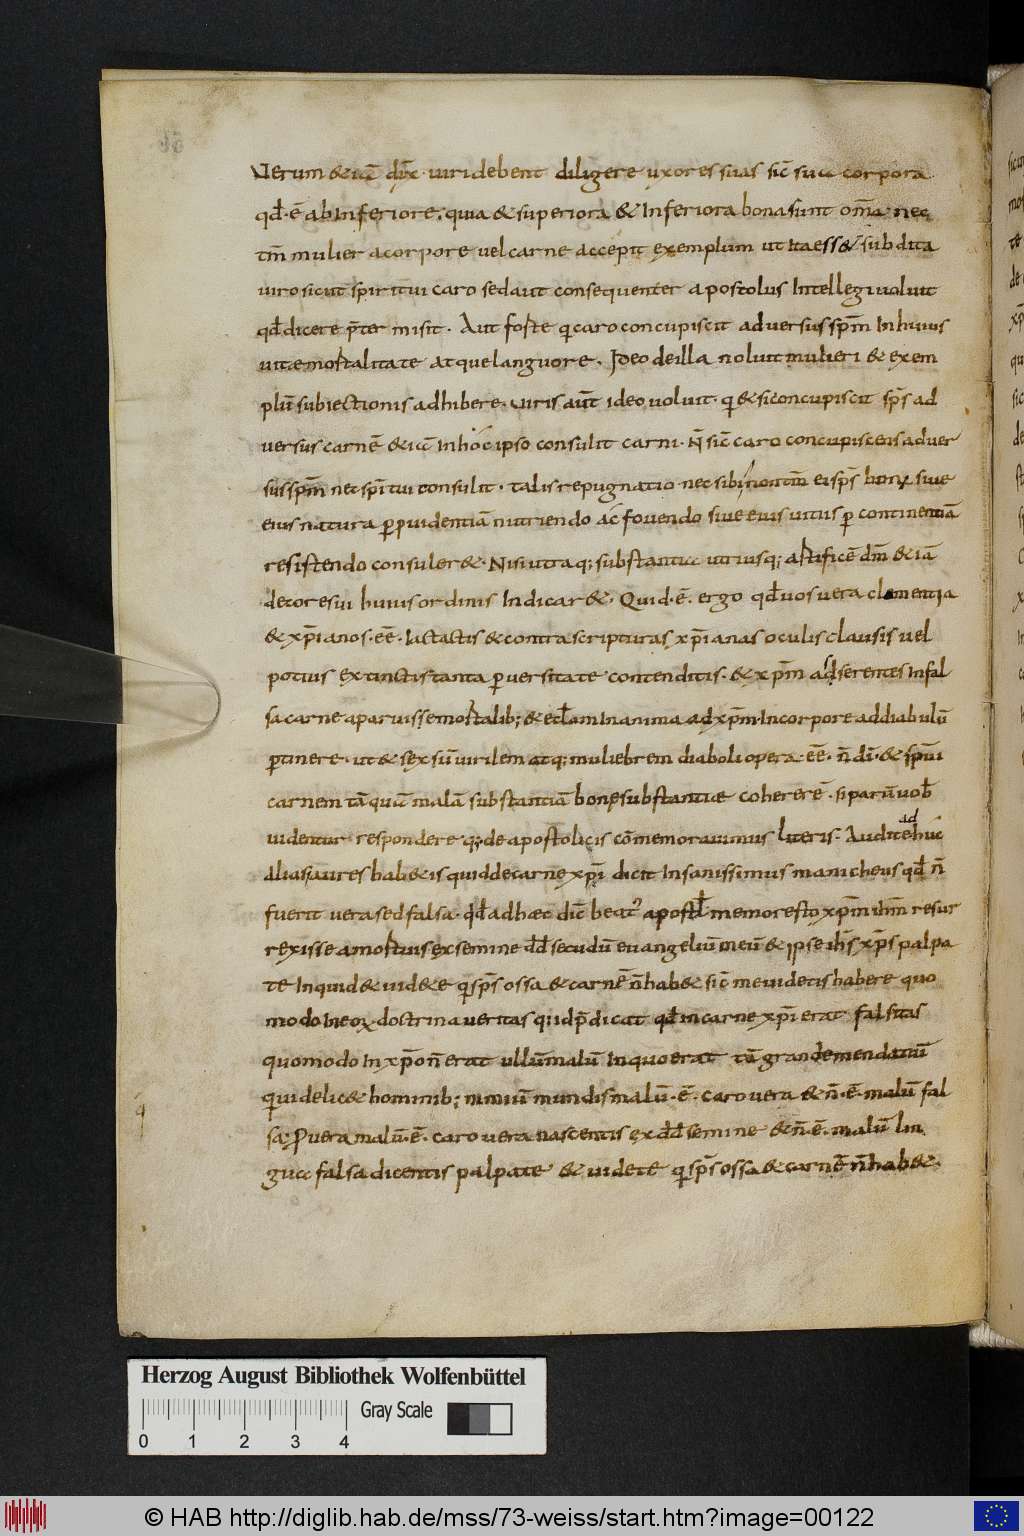 Verum & cū dix̄ · viri debent diligere uxores suas sic̄ sua corpora
qd̄ · ē ab inferiore; quia & superiora & inferiora bona sunt om̄a nec
tm̄ mulier a corpore vel carne accepit exemplum ut ita ess& subdita
viro sicut spiritui caro sed aut consequenter apostolus intellegi voluit
qd̄ dicere p̄termisit · Aut forte q caro concupiscit adversus sp̄m in huius
vitae mortalitate atque languore · Ideo de illa noluit mulieri & exem
plū subiectionis adhibere · Viris aūt ideo voluit · q & si concupiscit sp̄s ad
versus carnē & iā in hoc ipso consulit carni · N̄ sic̄ caro concupiscens adver
sus sp̄m nec sp̄itui consulit · talis repugnatio nec sibi
eius natura p pvidentiā nutriendo ac fovendo sive eius vitiis p continentiā
resistendo consuler& · Nisi utraq; substantia utriusq; artificē dm̄ & iā
decore sui huius ordinis indicar& · Quid · ē · ergo qd̄ vos vera clementia
& xp̄ianos · eē · iactatis & contra scripturas xp̄ianas oculis clausis vel
potius extinctis tanta pversitate contenditis · & xp̄m adserentes in fal
sa carne aparuisse mortalib; & ecl̄am in anima ad xp̄m · in corpore ad diabulū
ptinere · ut & sexsū virilem atq; muliebrem diaboli opera eē · n̄ dī · & sp̄ui
carnem tā quā malā substantiā bone substantiae coherere · si parū vob̄
videntur respondere q; de apostolicis cōmemoravimus literis · Audite
ad huc
alia si aures hab&is quid de carne xp̄i dicit insanissimus manicheus qd̄ n̄
fuerit vera sed falsa · qd̄ ad haec dic̄ beat' apostl̄ memor esto xp̄m ih̄m resur
rexisse a mortuis ex semine dd̄ secudū evangeliū meū & ipse ih̄s xp̄s palpa
te inquid & vid&e q sp̄s ossa & carnē n̄ hab& sic̄ me videtis habere quo
modo in eoꝝ · doctrina veritas qui p̄dicat qd̄ in carne xp̄i erat falsitas
quomodo in xp̄o n̄ erat ullū malū in quo erat tā grande mendatiū
qui delic& hominib; nimiū mundis malū · ē · caro vera & n̄ · ē · malū fal
sa; P vera malū · ē · caro vera nascentis ex dd̄ semine & n̄ · ē · malū lin
gua falsa dicentis palpate & videte q sp̄s ossa & carnē n̄ hab& ·
Herzog August Bibliothek Wolfenbüttel
Gray Scale
0 1 2 3 4
© HAB http://diglib.hab.de/mss/73-weiss/start.htm?image=00122